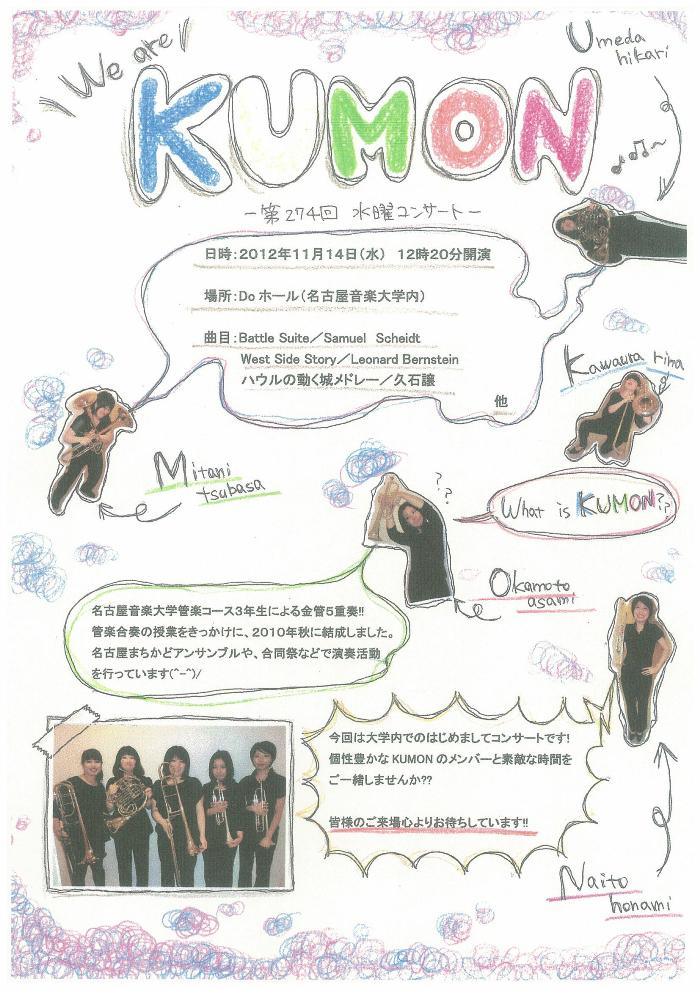 We are
KUMON
Umeda
hikari
-第274回 水曜コンサート-
日時:2012年11月14日(水) 12時20分開演
場所:Doホール(名古屋音楽大学内)
曲目:Battle Suite/Samuel Scheidt
West Side Story/Leonard Bernstein
ハウルの動く城メドレー/久石譲
他
Kawaura rina
Mitani
tsubasa
??
What is KUMON??
Okamoto
asami
名古屋音楽大学管楽コース3年生による金管5重奏!!
管楽合奏の授業をきっかけに、2010年秋に結成しました。
名古屋まちかどアンサンブルや、合同祭などで演奏活動
を行っています(^-^)/
今回は大学内でのはじめましてコンサートです!
個性豊かなKUMONのメンバーと素敵な時間を
ご一緒しませんか??
皆様のご来場心よりお待ちしています!!
Naito
honami